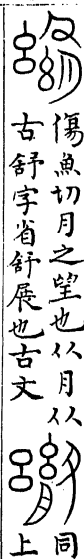 傷魚切月之望也从月从
古舒字省舒展也古文
同
上